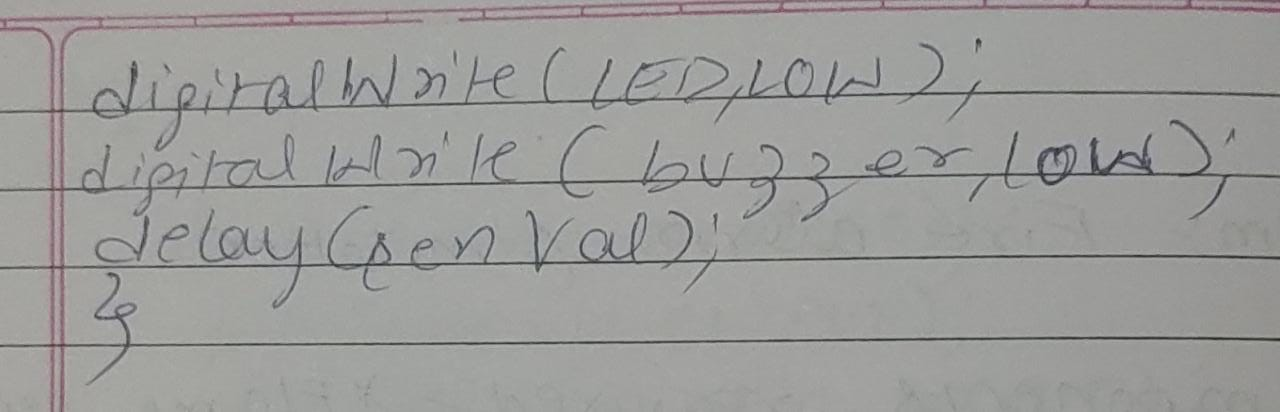 digitalWrite(LED,LOW);
digitalWrite(buzzer,LOW);
delay(senVal);
}